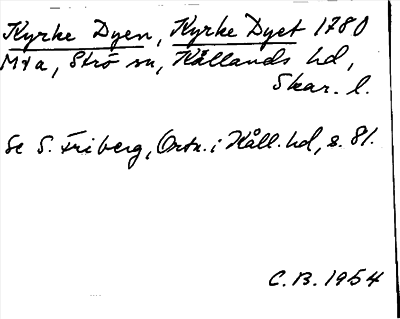 Kyrke Dyen, Kyrke Dyet 1780
Mta, Strö sn, Kållands hd,
Skar. l.
Se S. Friberg, Ortn. i Kåll. hd, s. 81.
C.B. 1954